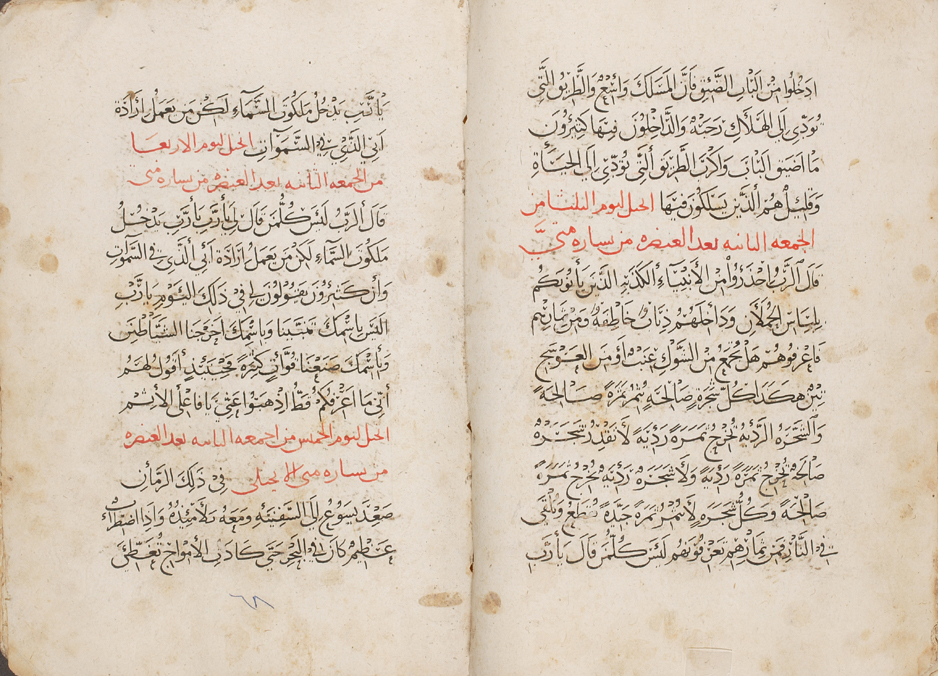 ادخلوا من الباب الضيق فان المسلك واسع والطريق التي
تودي الى الهلاك رحبه والداخلون فيها كثيرون
ما اضيق الباب واكرب الطريق التي تودي الى الحياه
وقليل هم الذين يسلكون فيها الحل ليوم الثلثا من
الجمعه الثانيه بعد العنصره من بساره متى
قال الرب احذروا من الأنبياء الكذبه الذين يأتونكم
بلباس الحملان وداخلهم ذياب خاطفه ومن ثمارهم
فاعرفوهم هل يجمع من الشوك عنب او من العوسج
تين هكذا كل شجره صالحه تثمر ثمرة صالحة
والشجره الرديه تخرج ثمره رديه لا تقدر شجره
صالحه تخرج ثمرة رديه ولا شجره رديه تخرج ثمره
صالحة وكل شجره لا تثمر ثمرة جيدة تقطع وتلقى
في النار فمن ثمارهم تعرفونهم ليس كلمن قال يا رب
يا رب يدخل ملكوت السماء لكن من يعمل ارادة
ابي الذي في السموات الحل ليوم الاربعا
من الجمعه الثانيه بعد العنصره من بساره متى
قال الرب ليس كلمن قال لي يا رب يا رب يدخل
ملكوت السماء لكن من يعمل ارادة أبي الذي في السموات
وأن كثيرون يقولون لي في ذلك اليوم يا رب
اليس باسمك تنبينا وباسمك اخرجنا الشياطين
وبأسمك صنعنا قوات كثيرة فحينيذ أقول لهم
أني ما اعرفكم قط اذهبوا عني يا فاعلي الأثم
الحل ليوم الخميس من الجمعه الثانيه بعد العنصره
من بساره متى الانجيلي في ذلك الزمان
صعد يسوع إلى السفينه ومعه تلاميذه واذا اضطراب
عظيم كان في البحر حتى كادت الأمواج تغطي
٦٨